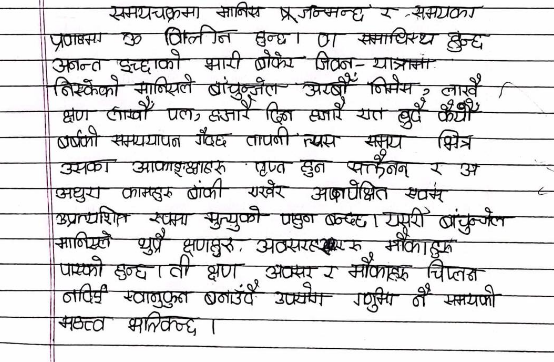 समयचक्रमा मानिस जन्मन्छ र समयका
प्रणाममा ऊ विलीन हुन्छ। वा समाधिस्थ हुन्छ
अनन्त इच्छाको भारी बोकेर जिवन-यात्रामा
निस्केको मानिसले बाँचुन्जेल अरबौं निमेस, लाखै
क्षण लाखौं पल, हजारै दिन हजारै रात हुदै कैयौं
बर्षको समययापन गर्दछ तापनी त्यस समय भित्र
उसका आकाङ्क्षाहरू तृप्त हुन सक्तैनन र अ
अधुरा कामहरू बाँकी राखेर अनपेक्षित एवम्
अप्रत्याशित रूपमा मृत्युको पाहुन बन्दछ। यसरी बाँचुन्जेल
मानिसले थुप्रै क्षणहरू, अवसरहरू मौकाहरू
पाएको हुन्छ। ती क्षण अवसर र मौकाहरू चिप्लन
नदिई स्वानुकुल बनाउँदै उपयोग गर्नुमा नै समयको
महत्व झल्किन्छ।